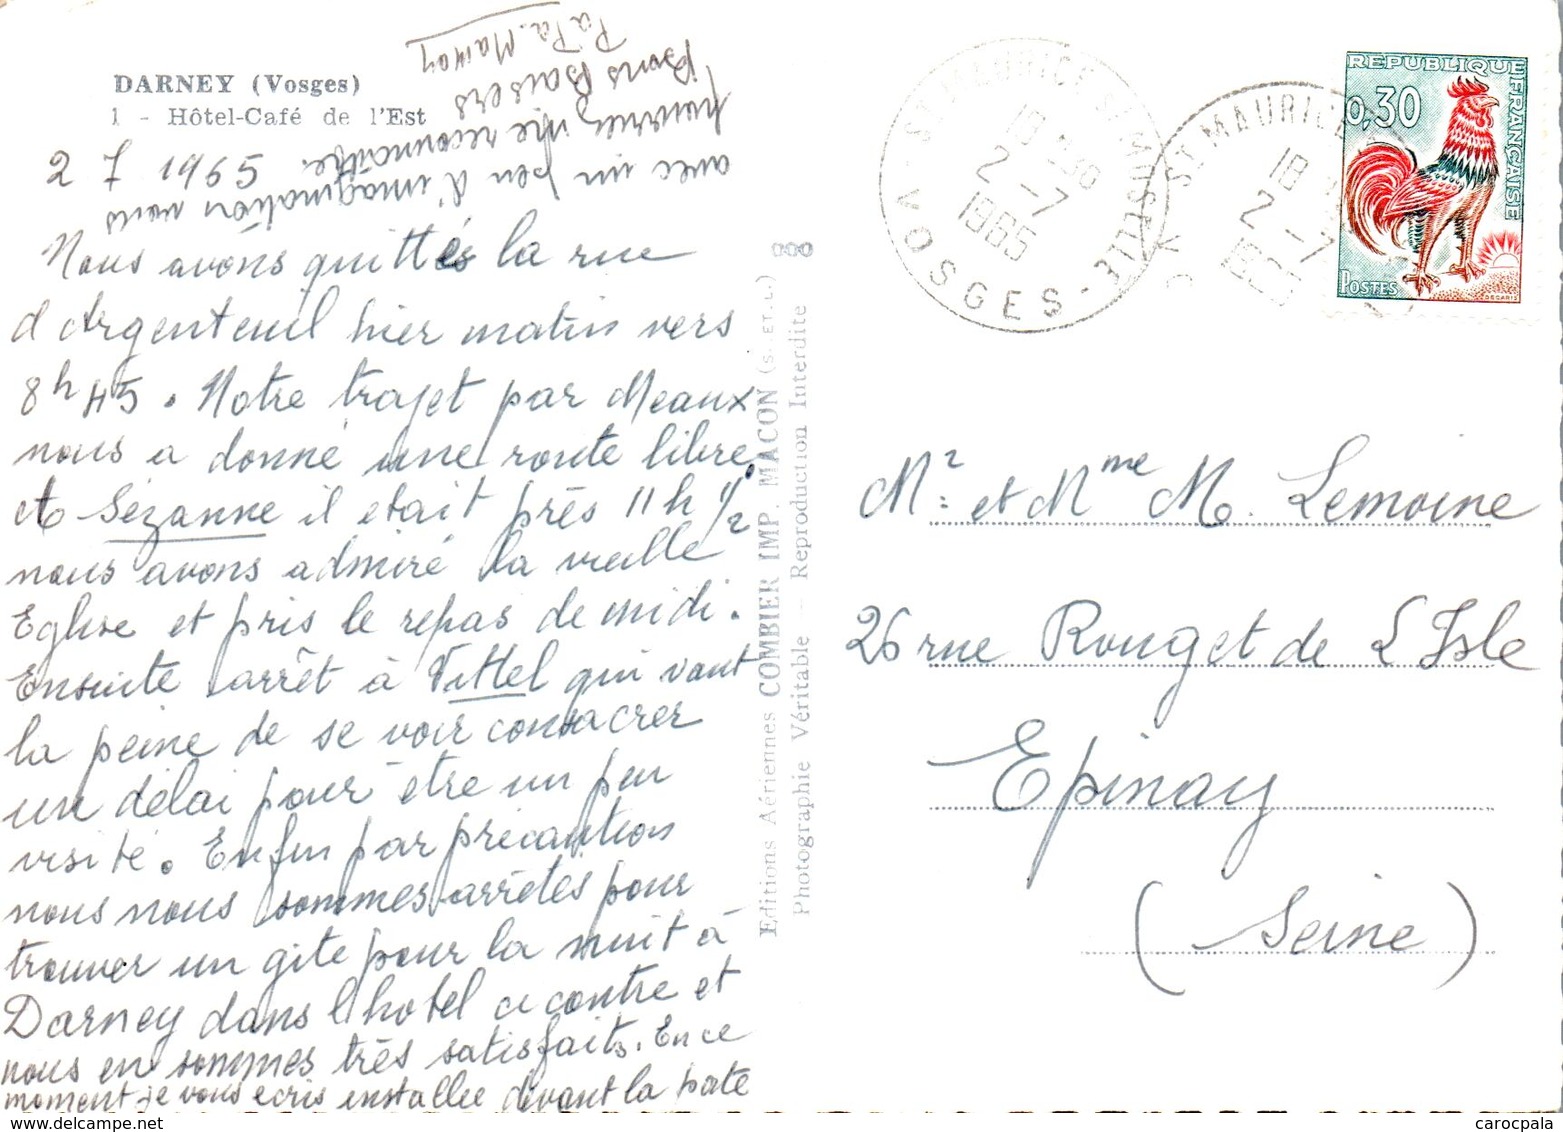 DARNEY (Vosges)
1 - Hôtel-Café de l'Est
2 7 1965
Nous avons quittés la rue
d'Argenteuil hier matin vers
8h45. Notre trajet par Meaux
nous a donné une route libre.
A Sézanne il etait près 11h 1/2
nous avons admiré la vieille
Eglise et pris le repas de midi.
Ensuite arrêt à Vittel qui vaut
la peine de se voir consacrer
un délai pour être un peu
visité. Enfin par précaution
nous nous sommes arrêtés pour
trouver un gite pour la nuit à
Darney dans l'hotel ci contre et
nous en sommes très satisfaits. En ce
moment je vous ecris installée devant la
avec un peu d'imagination vous
pourriez me reconnaitre.
Bons Baisers
PaPa. Maman
Editions Aériennes COMBIER IMP. MACON (S.-ET-L.)
Photographie Véritable - Reproduction Interdite
ST MAURICE S/ MOSELLE
18 H
2 - 7
1965
VOSGES
ST MAURICE
18
2 - 7
REPUBLIQUE FRANÇAISE
0,30
POSTES
DECARIS
Mr et Mme M. Lemoine
26 rue Rouget de L'Isle
Epinay
(Seine)
carocpala